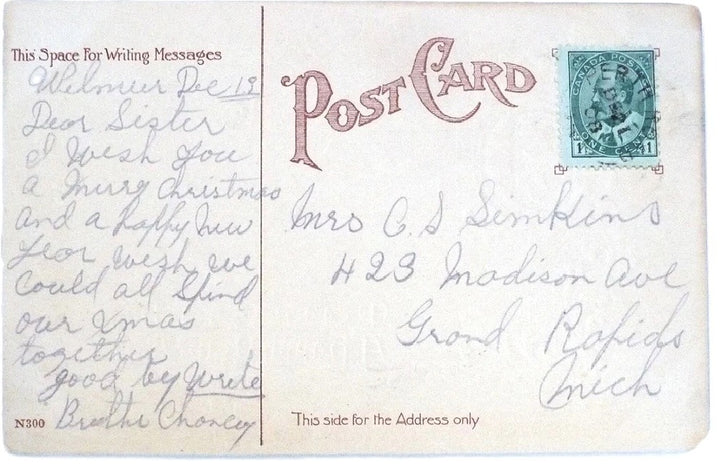 This Space For Writing Messages
POST CARD
CANADA POSTAGE
1 ONE CENT 1
Dec 19
Dear Sister
I Wish you
a Merry Christmas
and a happy New
year wish we
could all Spind
our Xmas
together
good by Write
Mrs C. S Simkins
423 Madison Ave
Grand Rapids
Mich
N300
This side for the Address only